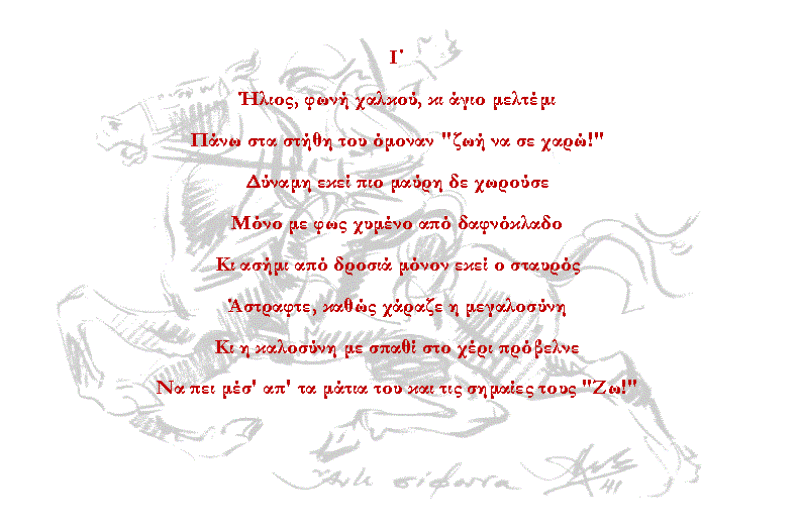 Ι΄
Ήλιος, φωνή χαλκού, κι άγιο μελτέμι
Πάνω στα στήθη του όμοναν "ζωή να σε χαρώ!"
Δύναμη εκεί πιο μαύρη δε χωρούσε
Μόνο με φως χυμένο από δαφνόκλαδο
Κι ασήμι από δροσιά μόνον εκεί ο σταυρός
Άστραφτε, καθώς χάραζε η μεγαλοσύνη
Κι η καλοσύνη με σπαθί στο χέρι πρόβελνε
Να πει μέσ' απ' τα μάτια του και τις σημαίες τους "Ζω!"
41